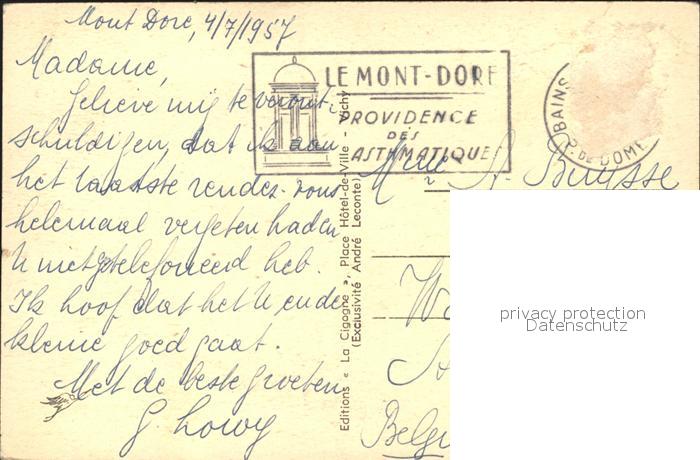 Mont Dore, 4/7/1957
Madame,
Gelieve mij te veront-
schuldigen, dat ik aan
het laatste rendez-vous
helemaal vergeten had en
U niet getelefoneerd heb.
Ik hoof dat het U en de
kleine goed gaat.
Met de beste groeten
G. Lowy
LE MONT-DORE
PROVIDENCE
DES
ASTHMATIQUES
BAINS
P. DE DOME
Editions « La Cigogne », Place Hôtel-de-Ville - Vichy
(Exclusivité André Leconte)
A. Buysse
Belg
privacy protection
Datenschutz